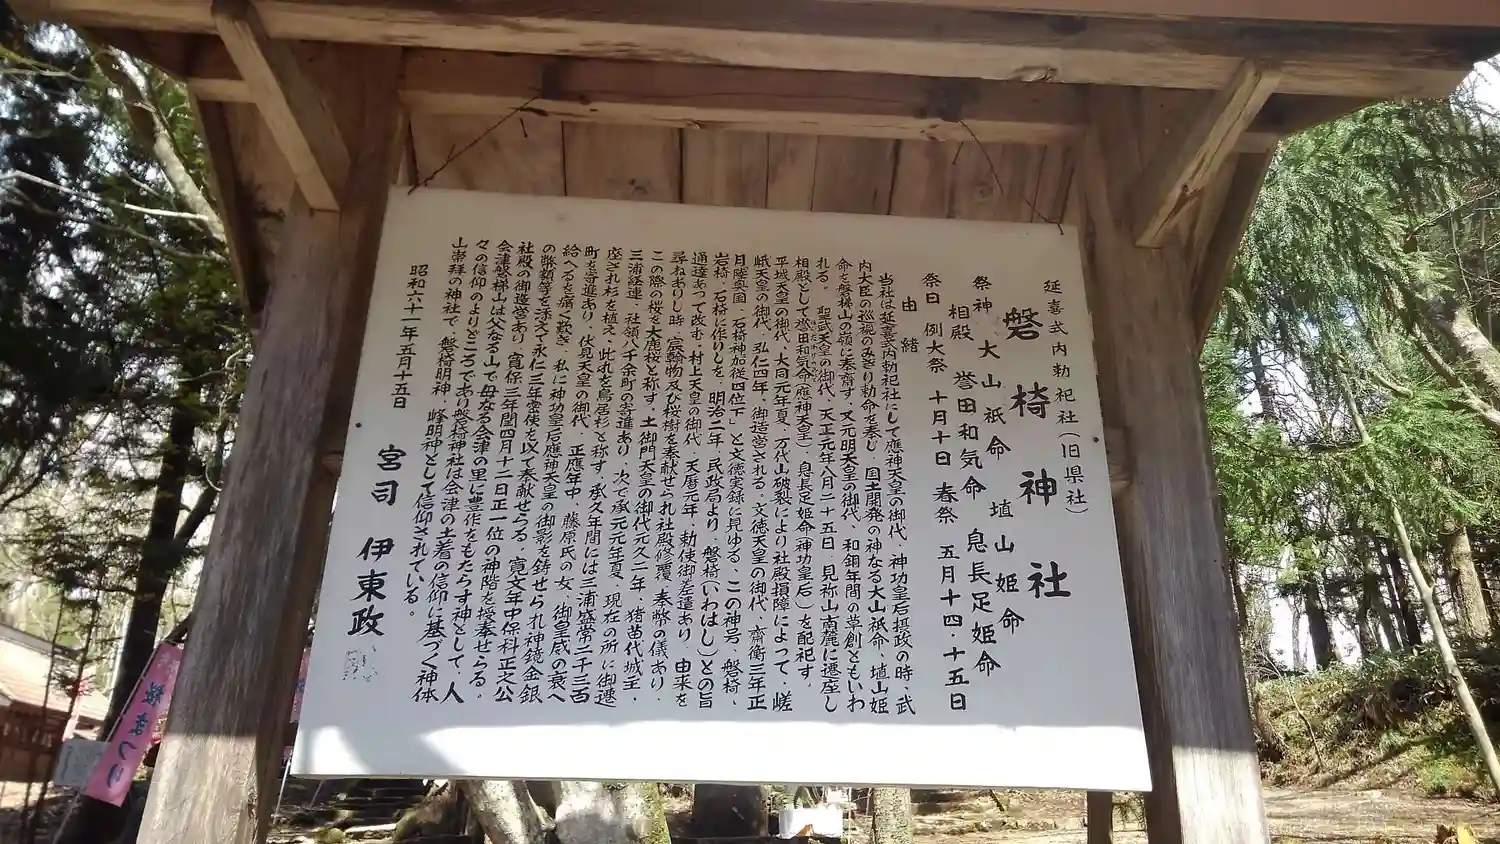 延喜式内勅祀社（旧県社）
磐椅神社
祭神 大山祇命 埴山姫命
相殿 誉田和気命 息長足姫命
祭日 例大祭 十月十日 春祭 五月十四・十五日
由緒
当社は延喜式内勅祀社にして應神天皇の御代、神功皇后摂政の時、武
内大臣の巡視のみぎり勅命を奉じ、国土開発の神なる大山祇命、埴山姫
命を磐椅山の嶺に奉斎す、又元明天皇の御代、和銅年間の草創ともいわ
れる。聖武天皇の御代、天正元年八月二十五日、見祢山南麓に遷座し
相殿として誉田和気命（應神天皇）、息長足姫命（神功皇后）を配祀す、
平城天皇の御代、大同元年夏、万代山破裂により社殿損障によって、嵯
峨天皇の御代、弘仁四年、御造営される。文徳天皇の御代、齋衡三年正
月陸奥国、石椅神加従四位下」と文徳実録に見ゆる、この神号、磐椅、
岩椅、石椅に作りしを、明治二年、民政局より、磐椅（いわはし）との旨
通達あって改む、村上天皇の御代、天暦元年、勅使御差遣あり、由来を
尋ねありし時、宸翰物及び桜樹を奉献せられ社殿修覆、奉幣の儀あり、
この際の桜を大鹿桜と称す、土御門天皇の御代元久二年、猪苗代城主、
三浦経連、社領八千余町の寄進あり、次で承元元年夏、現在の所に御遷
座され杉を植え、此れを鳥居杉と称す、承久年間には三浦盛常二千三百
町を寄進あり、伏見天皇の御代、正應年中、藤原氏の女、御皇威の衰へ
給へるを痛く歎き、私に神功皇后應神天皇の御影を鋳せられ神鏡金銀
の幣額等を添えて永仁三年常使を以て奉献せらる。寛文年中保科正之公
社殿の御造営あり、寛保三年閏四月十二日正一位の神階を授奉せらる。
会津磐梯山は父なる山で母なる会津の里に豊作をもたらす神として、人
々の信仰のよりどころであり磐椅神社は会津の土着の信仰に基づく神体
山崇拝の神社で、磐椅明神、峰明神として信仰されている。
昭和六十一年五月十五日
宮司 伊東政
桜まつり